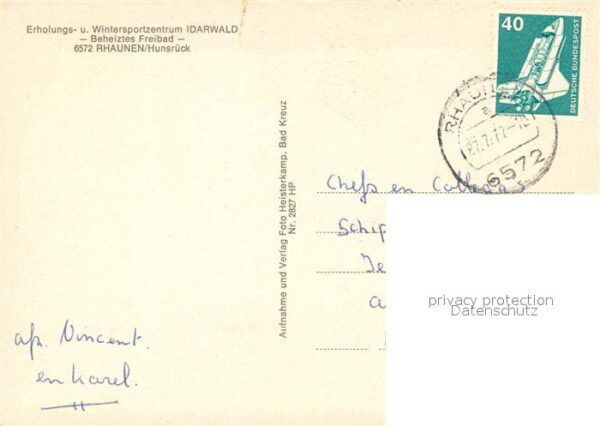 Erholungs- u. Wintersportzentrum IDARWALD
– Beheiztes Freibad –
6572 RHAUNEN/Hunsrück
40
DEUTSCHE BUNDESPOST
RHAUNEN
27.7.77-18
6572
Aufnahme und Verlag Foto Heisterkamp, Bad Kreuz
Nr. 2827 HP
Chefs en Collegas
Schip
privacy protection
Datenschutz
afz. Vincent.
en Karel.